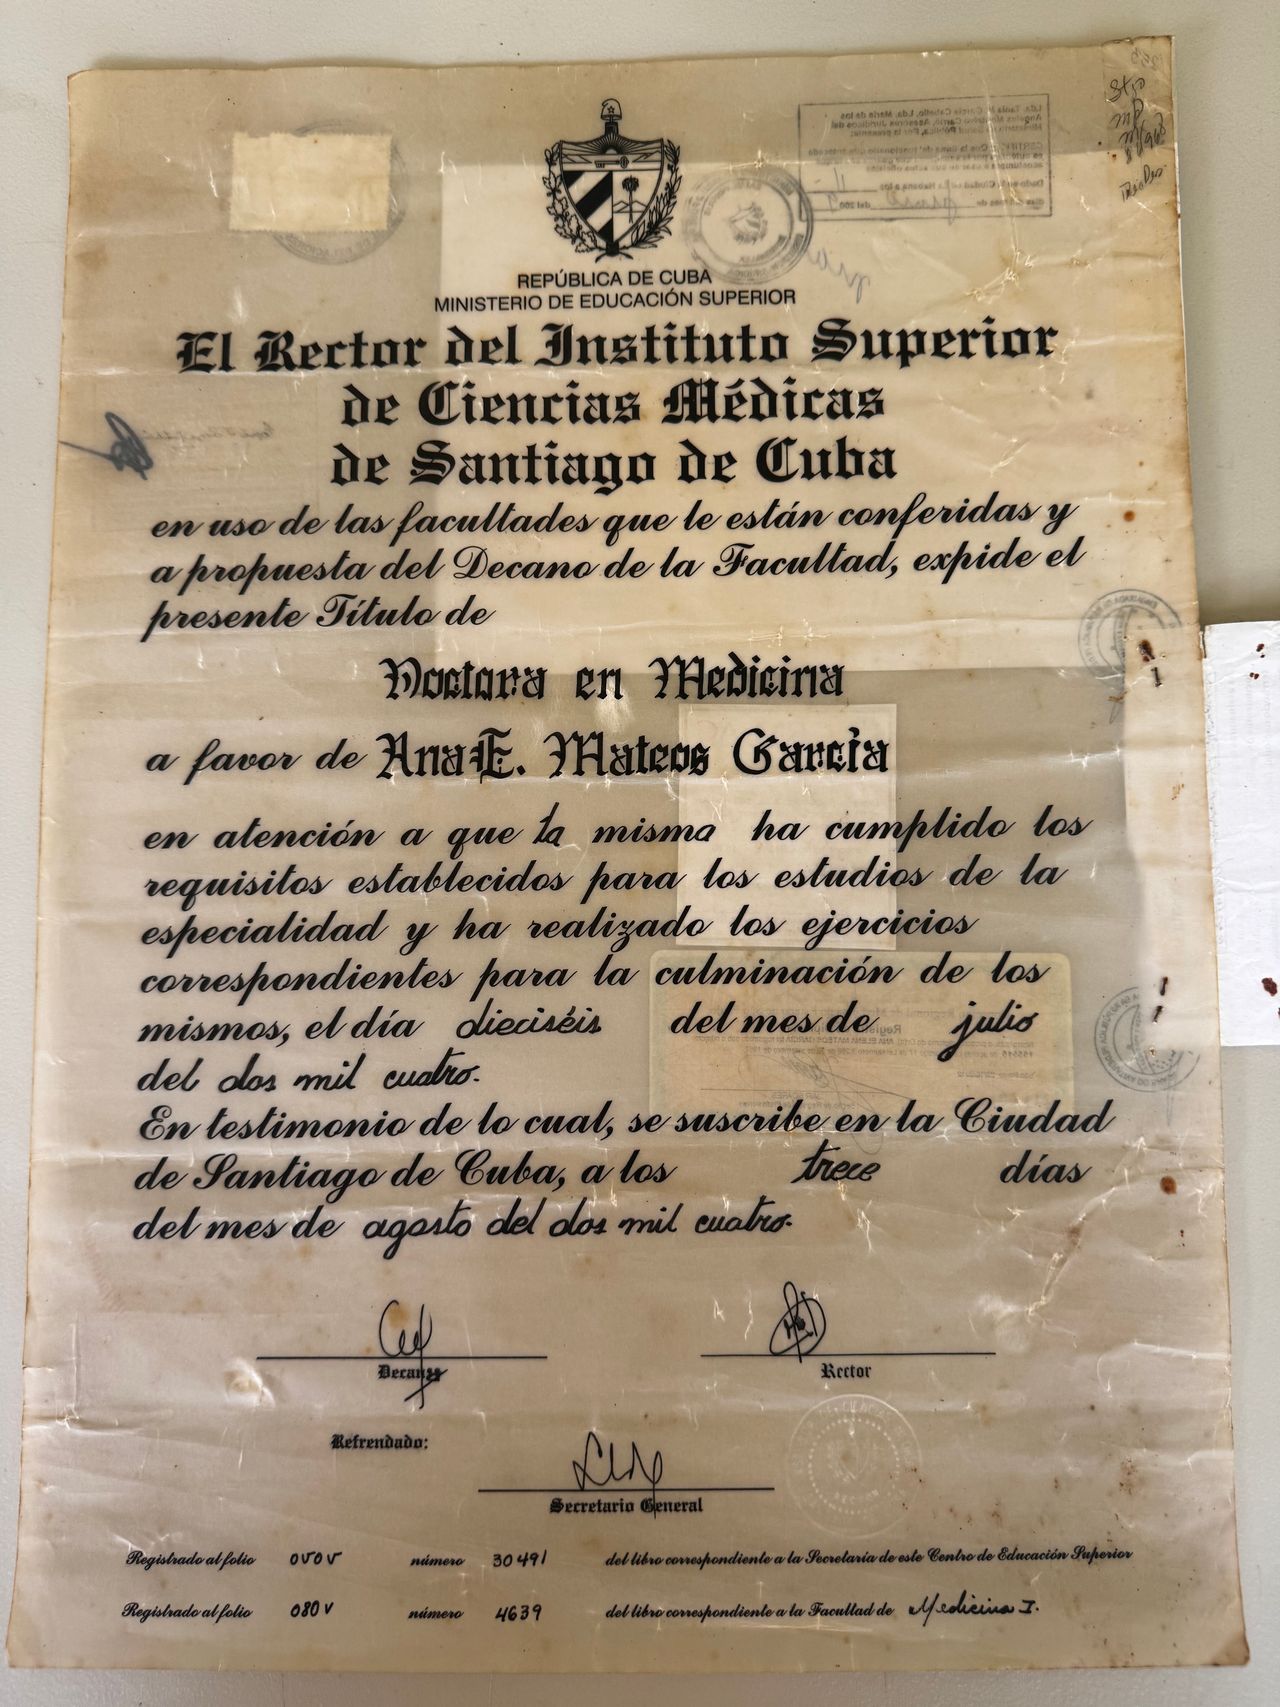 REPÚBLICA DE CUBA
MINISTERIO DE EDUCACIÓN SUPERIOR
El Rector del Instituto Superior
de Ciencias Médicas
de Santiago de Cuba
en uso de las facultades que le están conferidas y
a propuesta del Decano de la Facultad, expide el
presente Título de
Doctora en Medicina
a favor de Ana E. Mateos García
en atención a que la misma ha cumplido los
requisitos establecidos para los estudios de la
especialidad y ha realizado los ejercicios
correspondientes para la culminación de los
mismos, el día dieciséis del mes de julio
del dos mil cuatro.
En testimonio de lo cual, se suscribe en la Ciudad
de Santiago de Cuba, a los trece días
del mes de agosto del dos mil cuatro.
Rector
Refrendado:
Secretario General
Registrado al folio 0V0V número 30491 del libro correspondiente a la Secretaría de este Centro de Educación Superior
Registrado al folio 080V número 4639 del libro correspondiente a la Facultad de Medicina I.